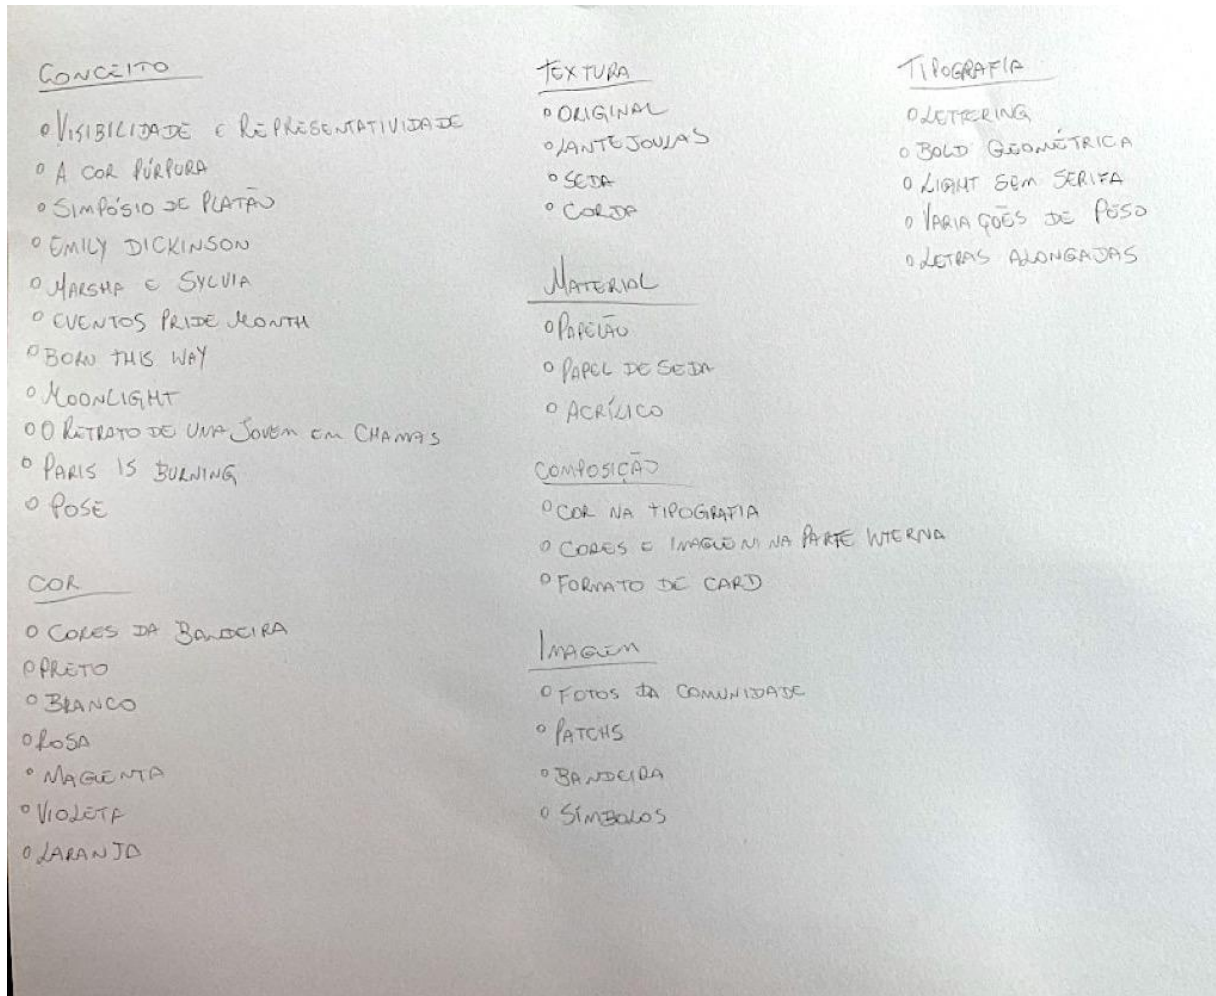 CONCEITO
VISIBILIDADE E REPRESENTATIVIDADE
A COR PÚRPURA
SIMPÓSIO DE PLATÃO
EMILY DICKINSON
MARSHA E SYLVIA
EVENTOS PRIDE MONTH
BORN THIS WAY
MOONLIGHT
O RETRATO DE UMA JOVEM EM CHAMAS
PARIS IS BURNING
POSE
COR
CORES DA BANDEIRA
PRETO
BRANCO
ROSA
MAGENTA
VIOLETA
LARANJA
TEXTURA
ORIGINAL
LANTEJOULAS
SEDA
CORDA
MATERIAL
PAPELÃO
PAPEL DE SEDA
ACRÍLICO
COMPOSIÇÃO
COR NA TIPOGRAFIA
CORES E IMAGEM NA PARTE INTERNA
FORMATO DE CARD
IMAGEM
FOTOS DA COMUNIDADE
PATCHS
BANDEIRA
SÍMBOLOS
TIPOGRAFIA
LETTERING
BOLD GEOMÉTRICA
LIGHT SEM SERIFA
VARIAÇÕES DE PESO
LETRAS ALONGADAS